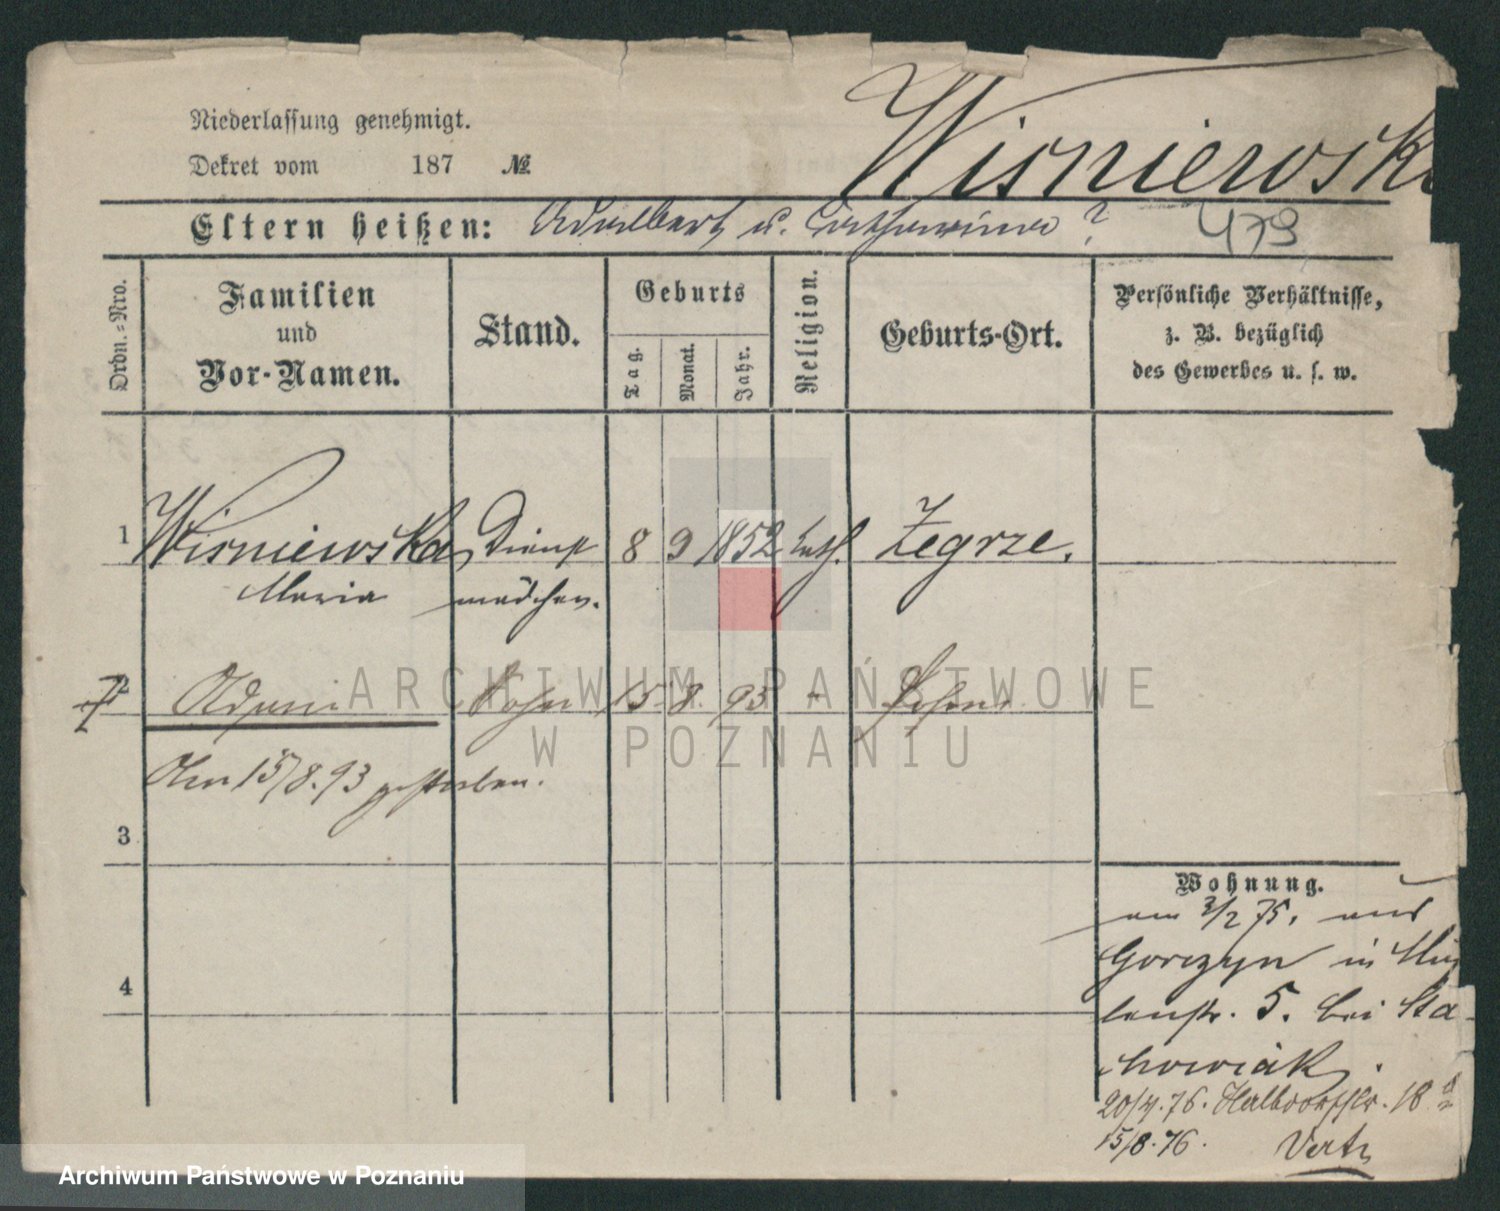 Niederlassung genehmigt.
Dekret vom 187 №
Wisniewska
Eltern heißen: Adalbert u. Catharina ?
479
Ordn.-Nro.
Familien
und
Vor-Namen.
Stand.
Geburts
Tag.
Monat.
Jahr.
Religion.
Geburts-Ort.
Persönliche Verhältnisse,
z. B. bezüglich
des Gewerbes u. s. w.
1 Wisniewska, Dienst 8 9 1852 kath. Zegrze.
Maria mädchen.
2 Sohn 15. 8. 93 " Posen
Am 15/8.93 gestorben.
3
4
Wohnung.
am 3/2 75. aus
Gorczyn in Müh
lenstr. 5. bei Sta-
chowiak.
20/4.76. Halbdorfstr. 18
15/8.76.
ARCHIWUM PAŃSTWOWE
W POZNANIU
Archiwum Państwowe w Poznaniu